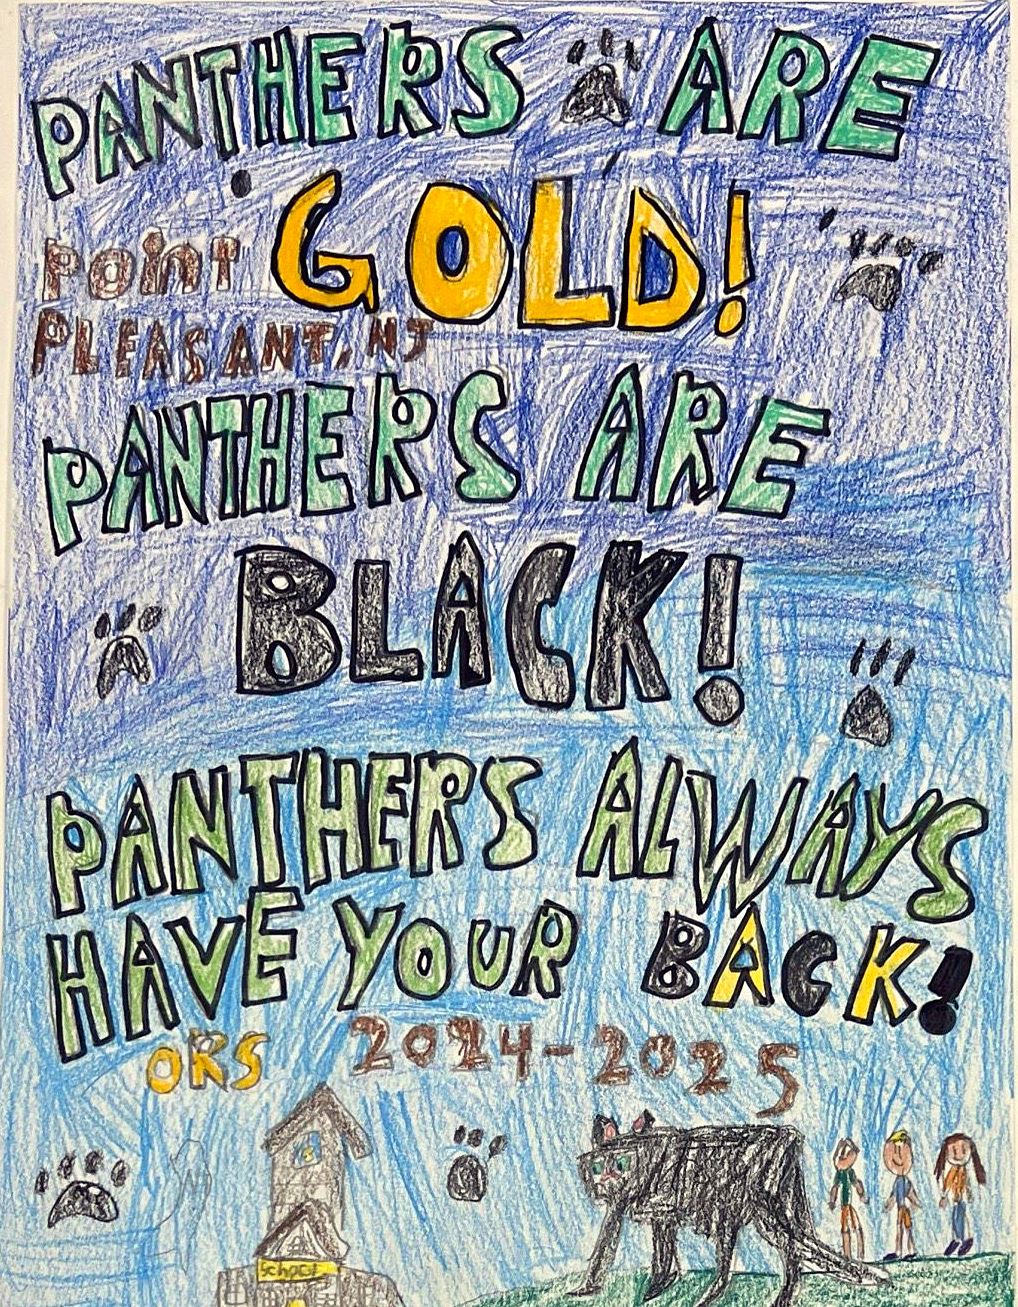 PANTHERS ARE
GOLD!
POINT
PLEASANT, NJ
PANTHERS ARE
BLACK!
PANTHERS ALWAYS
HAVE YOUR BACK!
ORS 2024-2025
School